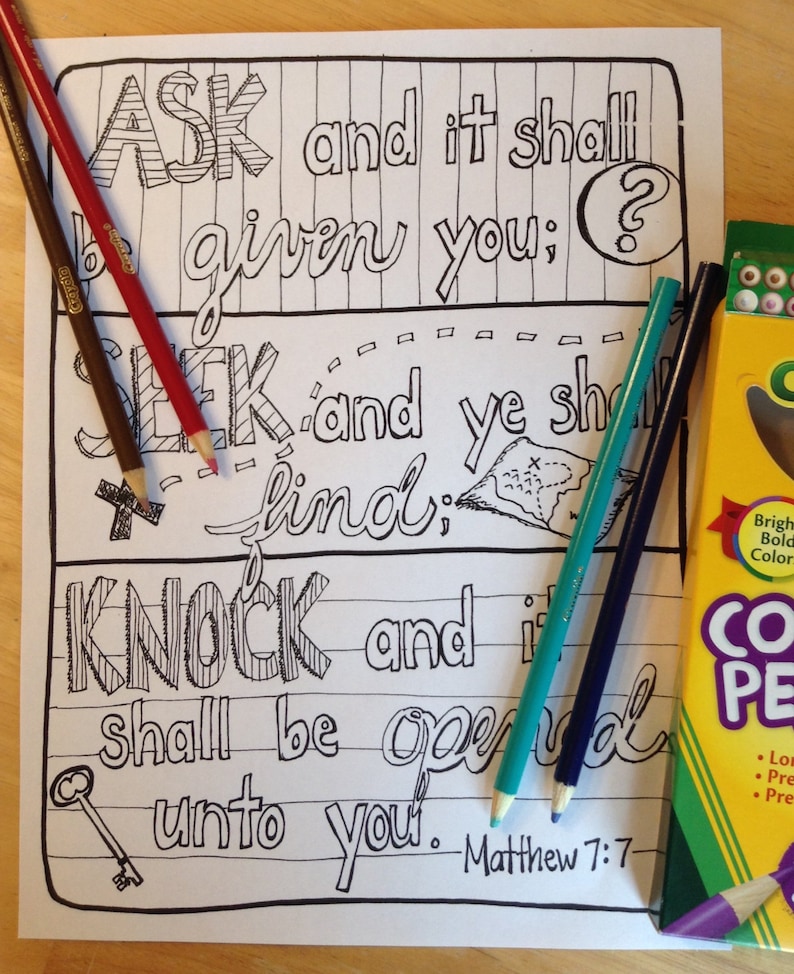 ASK and it shall
be given you;
?
SEEK and ye shall
find;
X
KNOCK and it
shall be opened
unto you.
Matthew 7:7
Crayola
Crayola
Bright
Bold
Color
CO
PE
• Lon
• Pre
• Pre